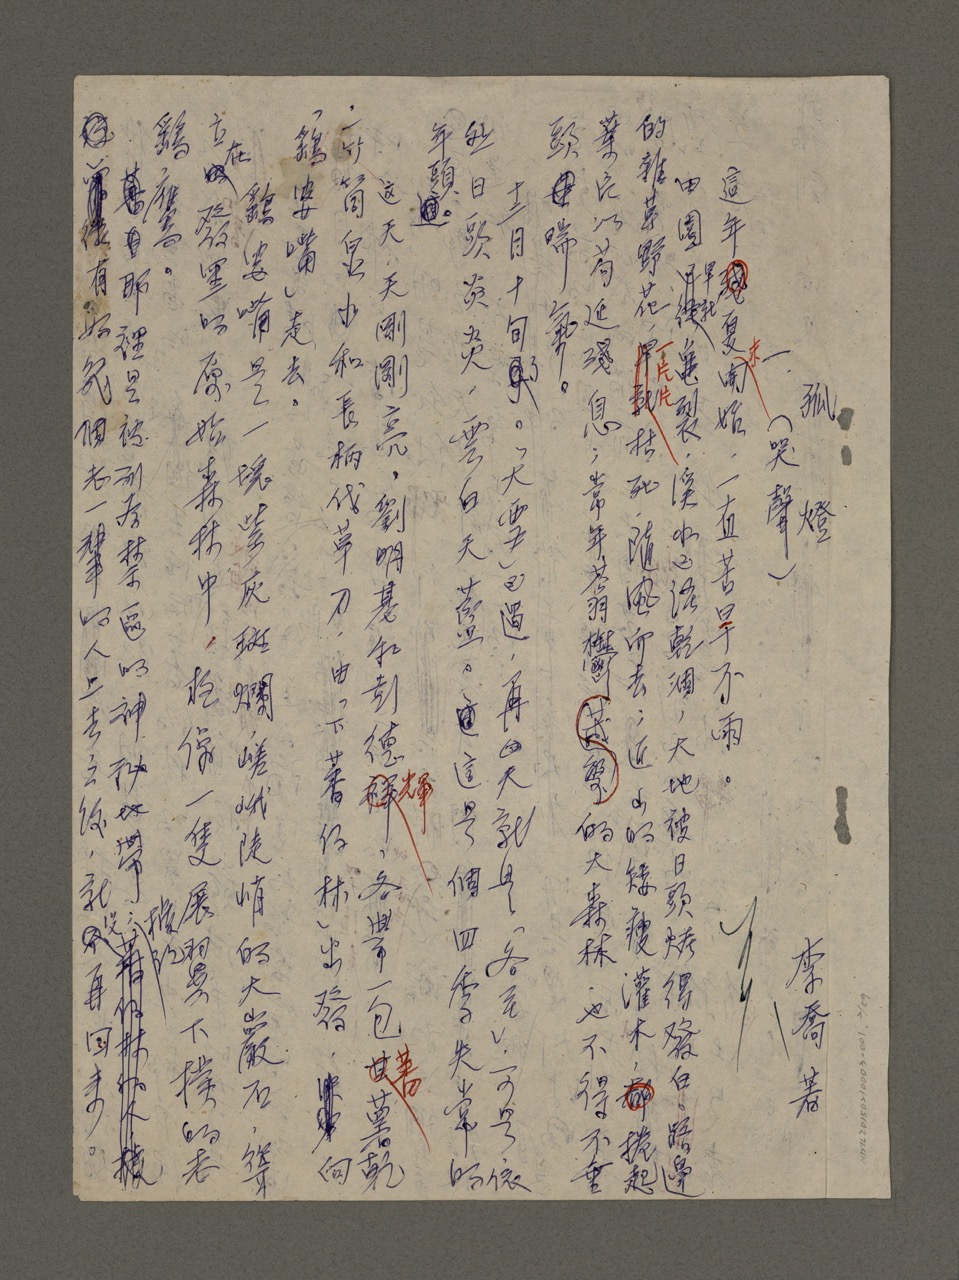 孤燈
李喬著
一、(哭聲)
這年夏末開始,一直苦旱不雨。
田園早就龜裂,溪水已洛乾涸,大地被日頭烤得發白。路邊
的雜草野花,一片片枯死,隨風而去,近山的矮瘦灌木,捲起
葉片以苟延殘息;常年蓊鬱的大森林,也不得不垂
頭喘氣。
十一月十旬了。「大雪」已過,再幾天就是「冬至」,可是依
然日頭炎炎,雲白天藍。這是個四季失常的
年頭。
這天,天剛剛亮,劉明基和彭德輝,各帶一包蕃薯乾
,一竹筒泉水和長柄伐草刀,由「下蕃仔林」出發,向
「鷂婆嘴」走去。
鷂婆嘴是一塊紫灰斑斕,嵯峨陡峭的大巖石,聳
立在發墨的原始森林中,極像一隻展翼下撲的老
鷂鷹。
那裡是被列為禁區的神秘地帶;據說
有好幾個老一輩的人上去之後,就沒再回來。
NMTL20150210003-001 1/459